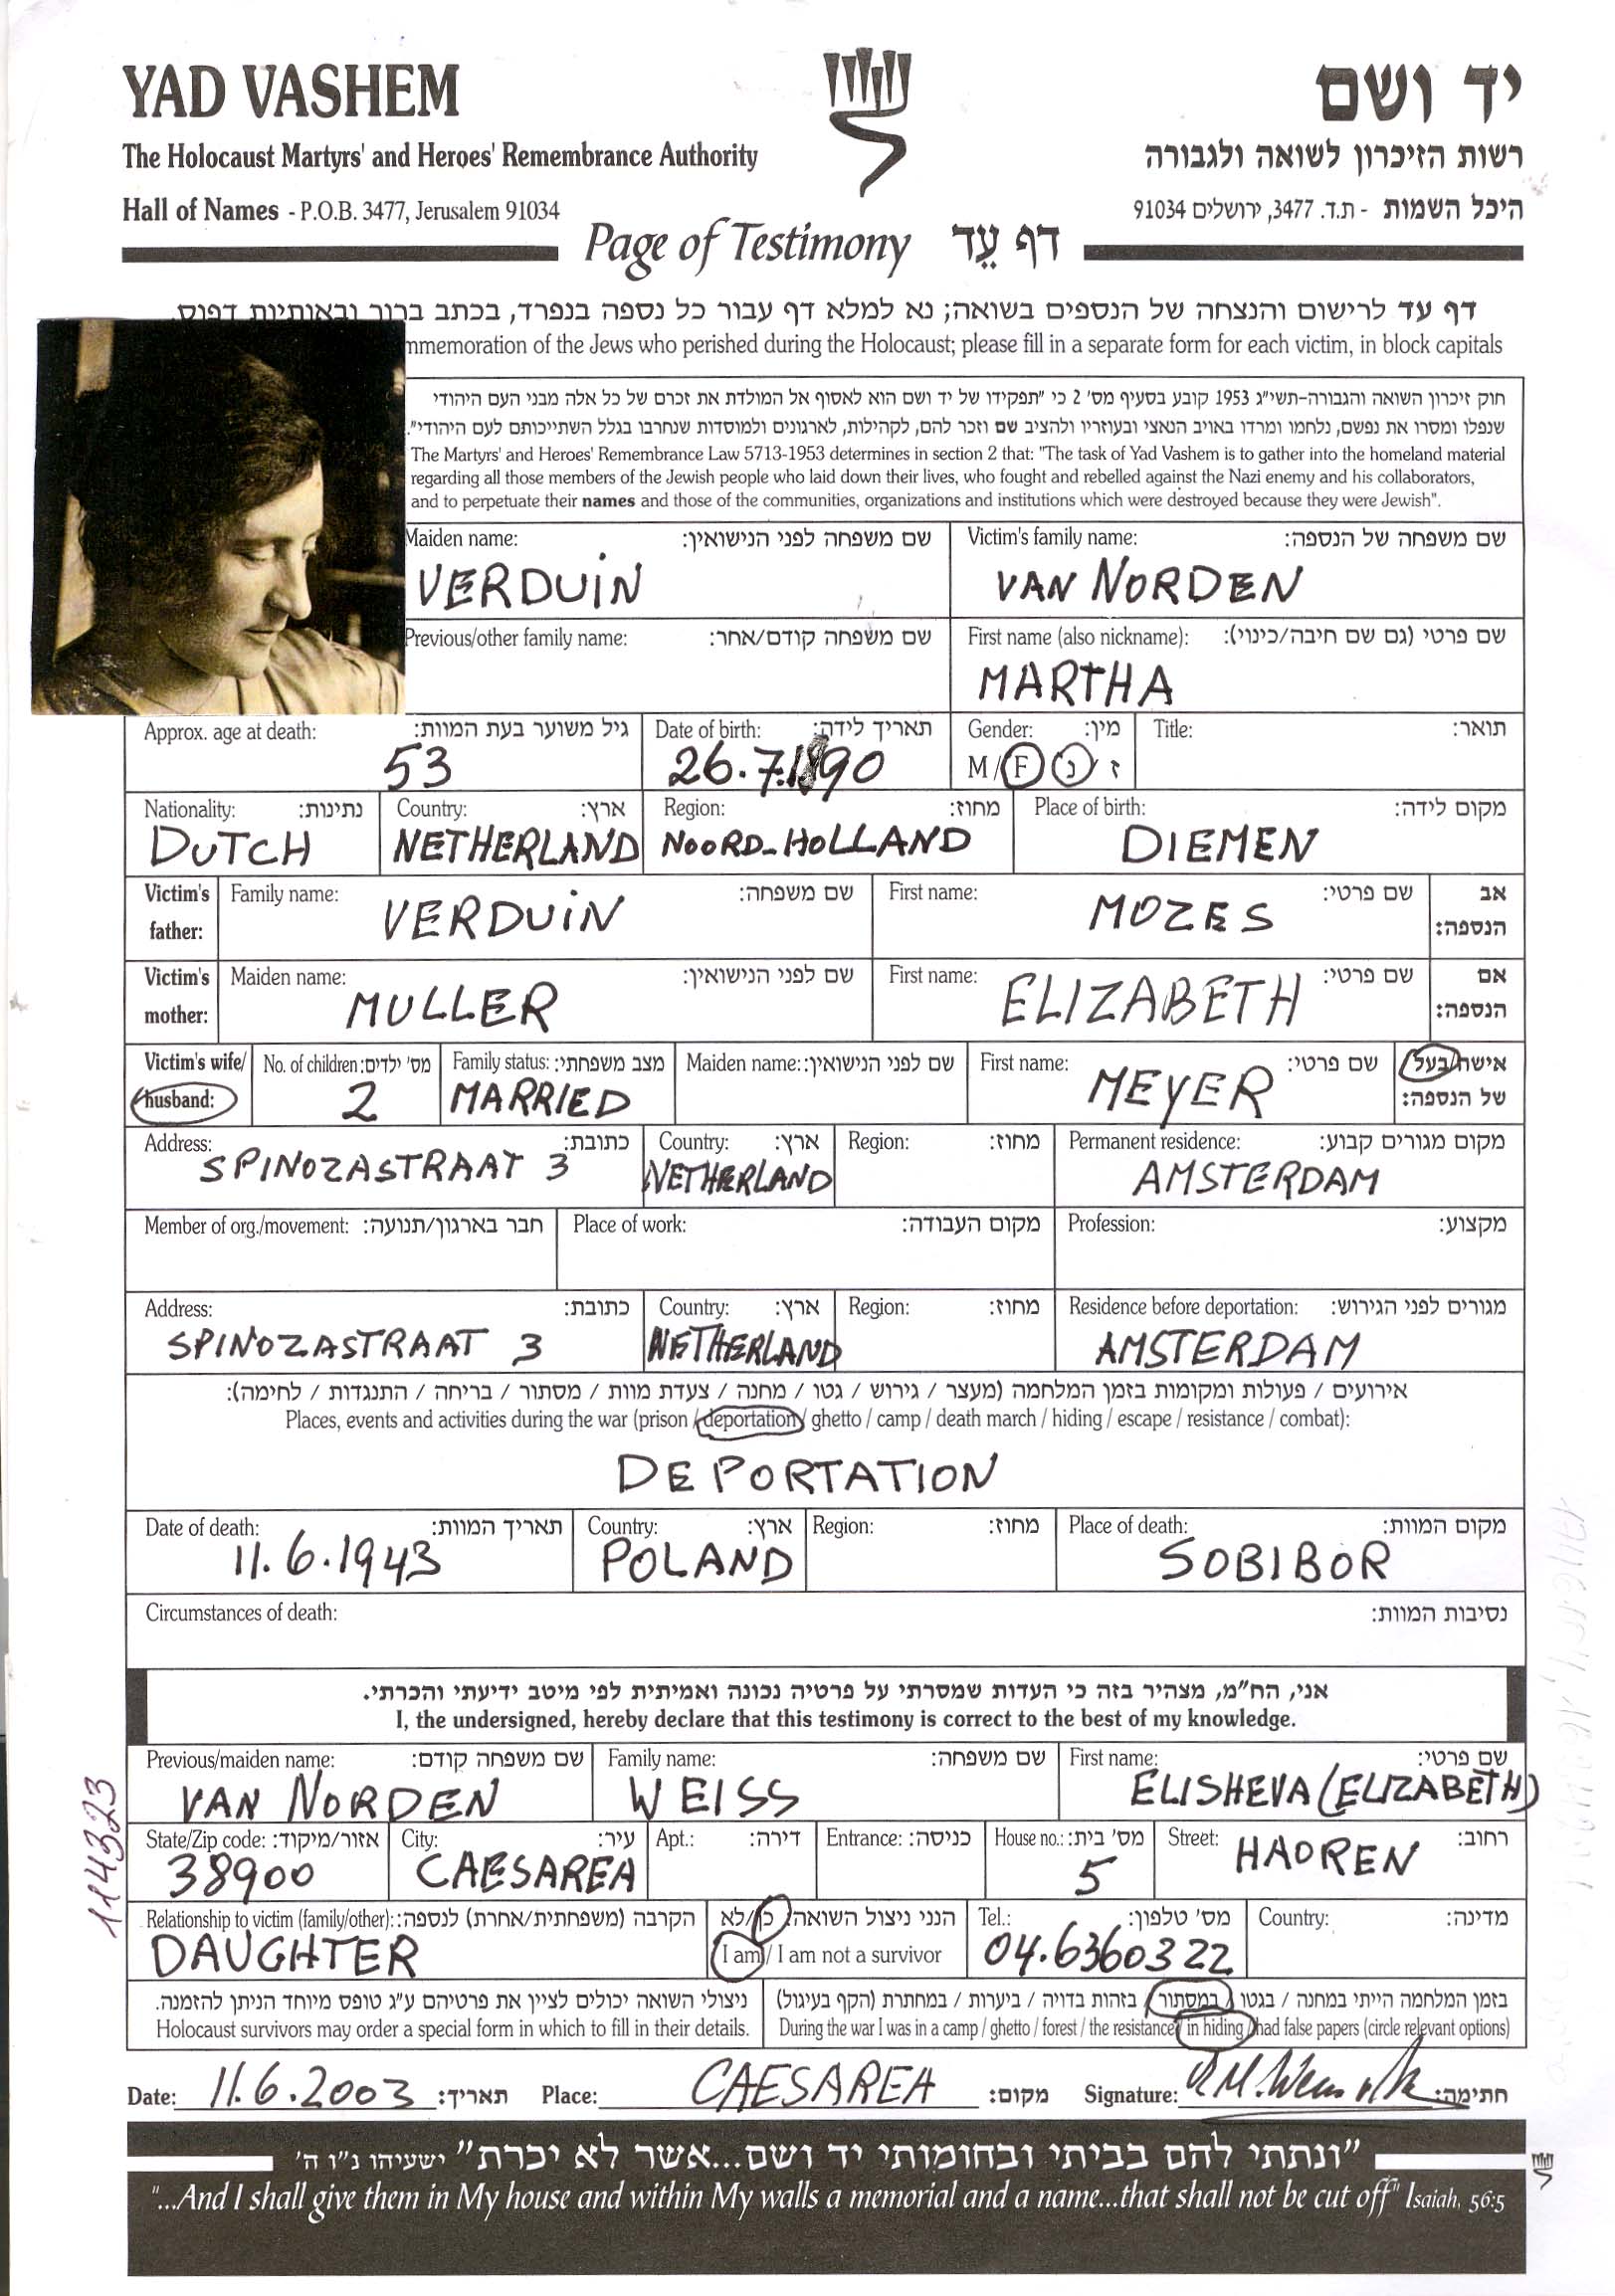 YAD VASHEM
יד ושם
The Holocaust Martyrs' and Heroes' Remembrance Authority
רשות הזיכרון לשואה ולגבורה
Hall of Names - P.O.B. 3477, Jerusalem 91034
היכל השמות - ת.ד. 3477, ירושלים 91034
Page of Testimony דף עֵד
דף עד לרישום והנצחה של הנספים בשואה; נא למלא דף עבור כל נספה בנפרד, בכתב ברור ובאותיות דפוס.
mmemoration of the Jews who perished during the Holocaust; please fill in a separate form for each victim, in block capitals
חוק זיכרון השואה והגבורה-תשי"ג 1953 קובע בסעיף מס' 2 כי "תפקידו של יד ושם הוא לאסוף אל המולדת את זכרם של כל אלה מבני העם היהודי
שנפלו ומסרו את נפשם, נלחמו ומרדו באויב הנאצי ובעוזריו ולהציב שם וזכר להם, לקהילות, לארגונים ולמוסדות שנחרבו בגלל השתייכותם לעם היהודי".
The Martyrs' and Heroes' Remembrance Law 5713-1953 determines in section 2 that: "The task of Yad Vashem is to gather into the homeland material
regarding all those members of the Jewish people who laid down their lives, who fought and rebelled against the Nazi enemy and his collaborators,
and to perpetuate their names and those of the communities, organizations and institutions which were destroyed because they were Jewish".
Maiden name: שם משפחה לפני הנישואין:
VERDUIN
Victim's family name: שם משפחה של הנספה:
VAN NORDEN
Previous/other family name: שם משפחה קודם/אחר:
First name (also nickname): שם פרטי (גם שם חיבה/כינוי):
MARTHA
Approx. age at death: גיל משוער בעת המוות:
53
Date of birth: תאריך לידה:
26.7.1890
Gender: מין:
M / F נ / ז
Title: תואר:
Nationality: נתינות:
DUTCH
Country: ארץ:
NETHERLAND
Region: מחוז:
NOORD-HOLLAND
Place of birth: מקום לידה:
DIEMEN
Victim's father:
Family name: שם משפחה:
VERDUIN
First name: שם פרטי:
MOZES
אב הנספה:
Victim's mother:
Maiden name: שם לפני הנישואין:
MULLER
First name: שם פרטי:
ELIZABETH
אם הנספה:
Victim's wife/ husband:
No. of children: מס' ילדים:
2
Family status: מצב משפחתי:
MARRIED
Maiden name: שם לפני הנישואין:
First name: שם פרטי:
MEYER
אישה/בעל של הנספה:
Address: כתובת:
SPINOZASTRAAT 3
Country: ארץ:
NETHERLAND
Region: מחוז:
Permanent residence: מקום מגורים קבוע:
AMSTERDAM
Member of org./movement: חבר בארגון/תנועה:
Place of work: מקום העבודה:
Profession: מקצוע:
Address: כתובת:
SPINOZASTRAAT 3
Country: ארץ:
NETHERLAND
Region: מחוז:
Residence before deportation: מגורים לפני הגירוש:
AMSTERDAM
אירועים / פעולות ומקומות בזמן המלחמה (מעצר / גירוש / גטו / מחנה / צעדת מוות / מסתור / בריחה / התנגדות / לחימה):
Places, events and activities during the war (prison / deportation / ghetto / camp / death march / hiding / escape / resistance / combat):
DEPORTATION
Date of death: תאריך המוות:
11.6.1943
Country: ארץ:
POLAND
Region: מחוז:
Place of death: מקום המוות:
SOBIBOR
Circumstances of death: נסיבות המוות:
אני, הח"מ, מצהיר בזה כי העדות שמסרתי על פרטיה נכונה ואמיתית לפי מיטב ידיעתי והכרתי.
I, the undersigned, hereby declare that this testimony is correct to the best of my knowledge.
Previous/maiden name: שם משפחה קודם:
VAN NORDEN
Family name: שם משפחה:
WEISS
First name: שם פרטי:
ELISHEVA (ELIZABETH)
State/Zip code: אזור/מיקוד:
38900
City: עיר:
CAESAREA
Apt.: דירה:
Entrance: כניסה:
House no.: מס' בית:
5
Street: רחוב:
HAOREN
114323
Relationship to victim (family/other): הקרבה (משפחתית/אחרת) לנספה:
DAUGHTER
הנני ניצול השואה: כן/לא
I am / I am not a survivor
Tel.: מס' טלפון:
04.6360322
Country: מדינה:
ניצולי השואה יכולים לציין את פרטיהם ע"ג טופס מיוחד הניתן להזמנה.
Holocaust survivors may order a special form in which to fill in their details.
בזמן המלחמה הייתי במחנה / בגטו / במסתור / בזהות בדויה / ביערות / במחתרת (הקף בעיגול)
During the war I was in a camp / ghetto / forest / the resistance / in hiding / had false papers (circle relevant options)
Date: 11.6.2003 תאריך: Place: CAESAREA מקום: Signature: חתימה:
"ונתתי להם בביתי ובחומותי יד ושם...אשר לא יכרת" ישעיהו נ"ו ה'
"...And I shall give them in My house and within My walls a memorial and a name...that shall not be cut off" Isaiah, 56:5